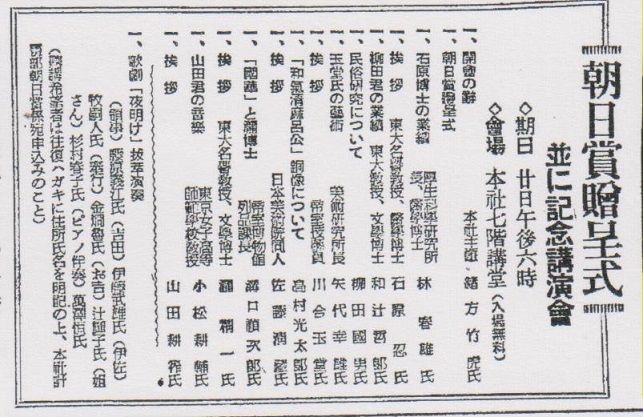 朝日賞贈呈式
並に記念講演會
◇期日 廿日午後六時
◇會場 本社七階講堂(入場無料)
一、開會の辭 本社主筆 緒方竹虎氏
朝日賞贈呈式
一、石原博士の業績 厚生科學研究所長、醫學博士 林春雄氏
一、挨拶 東大名譽教授、醫學博士 石原忍氏
一、柳田君の業績 東大教授、文學博士 和辻哲郎氏
一、民俗研究について 柳田國男氏
一、玉堂氏の藝術 美術研究所長 矢代幸雄氏
一、挨拶 帝室技藝員 川合玉堂氏
一、「和氣清麻呂公」銅像について 高村光太郎氏
一、挨拶 日本美術院同人 佐藤朝山氏
一、「國華」と瀧博士 帝室博物館列品課長 溝口禎次郎氏
一、挨拶 東大名譽教授、文學博士 瀧精一氏
一、山田君の音樂 東京女子高等師範學校教授 小松耕輔氏
一、挨拶 山田耕筰氏
一、歌劇「夜明け」拔萃演奏
(領事)藤原義江氏(吉田)伊藤武雄氏(伊佐)
牧嗣人氏(奉行)金澗氏(お吉)辻輝子氏(姐
さん)杉村春子氏(ピアノ伴奏)萬澤恒氏
(聽講希望者は往復ハガキに住所氏名を明記の上、本社計
畫部朝日賞係宛申込みのこと)